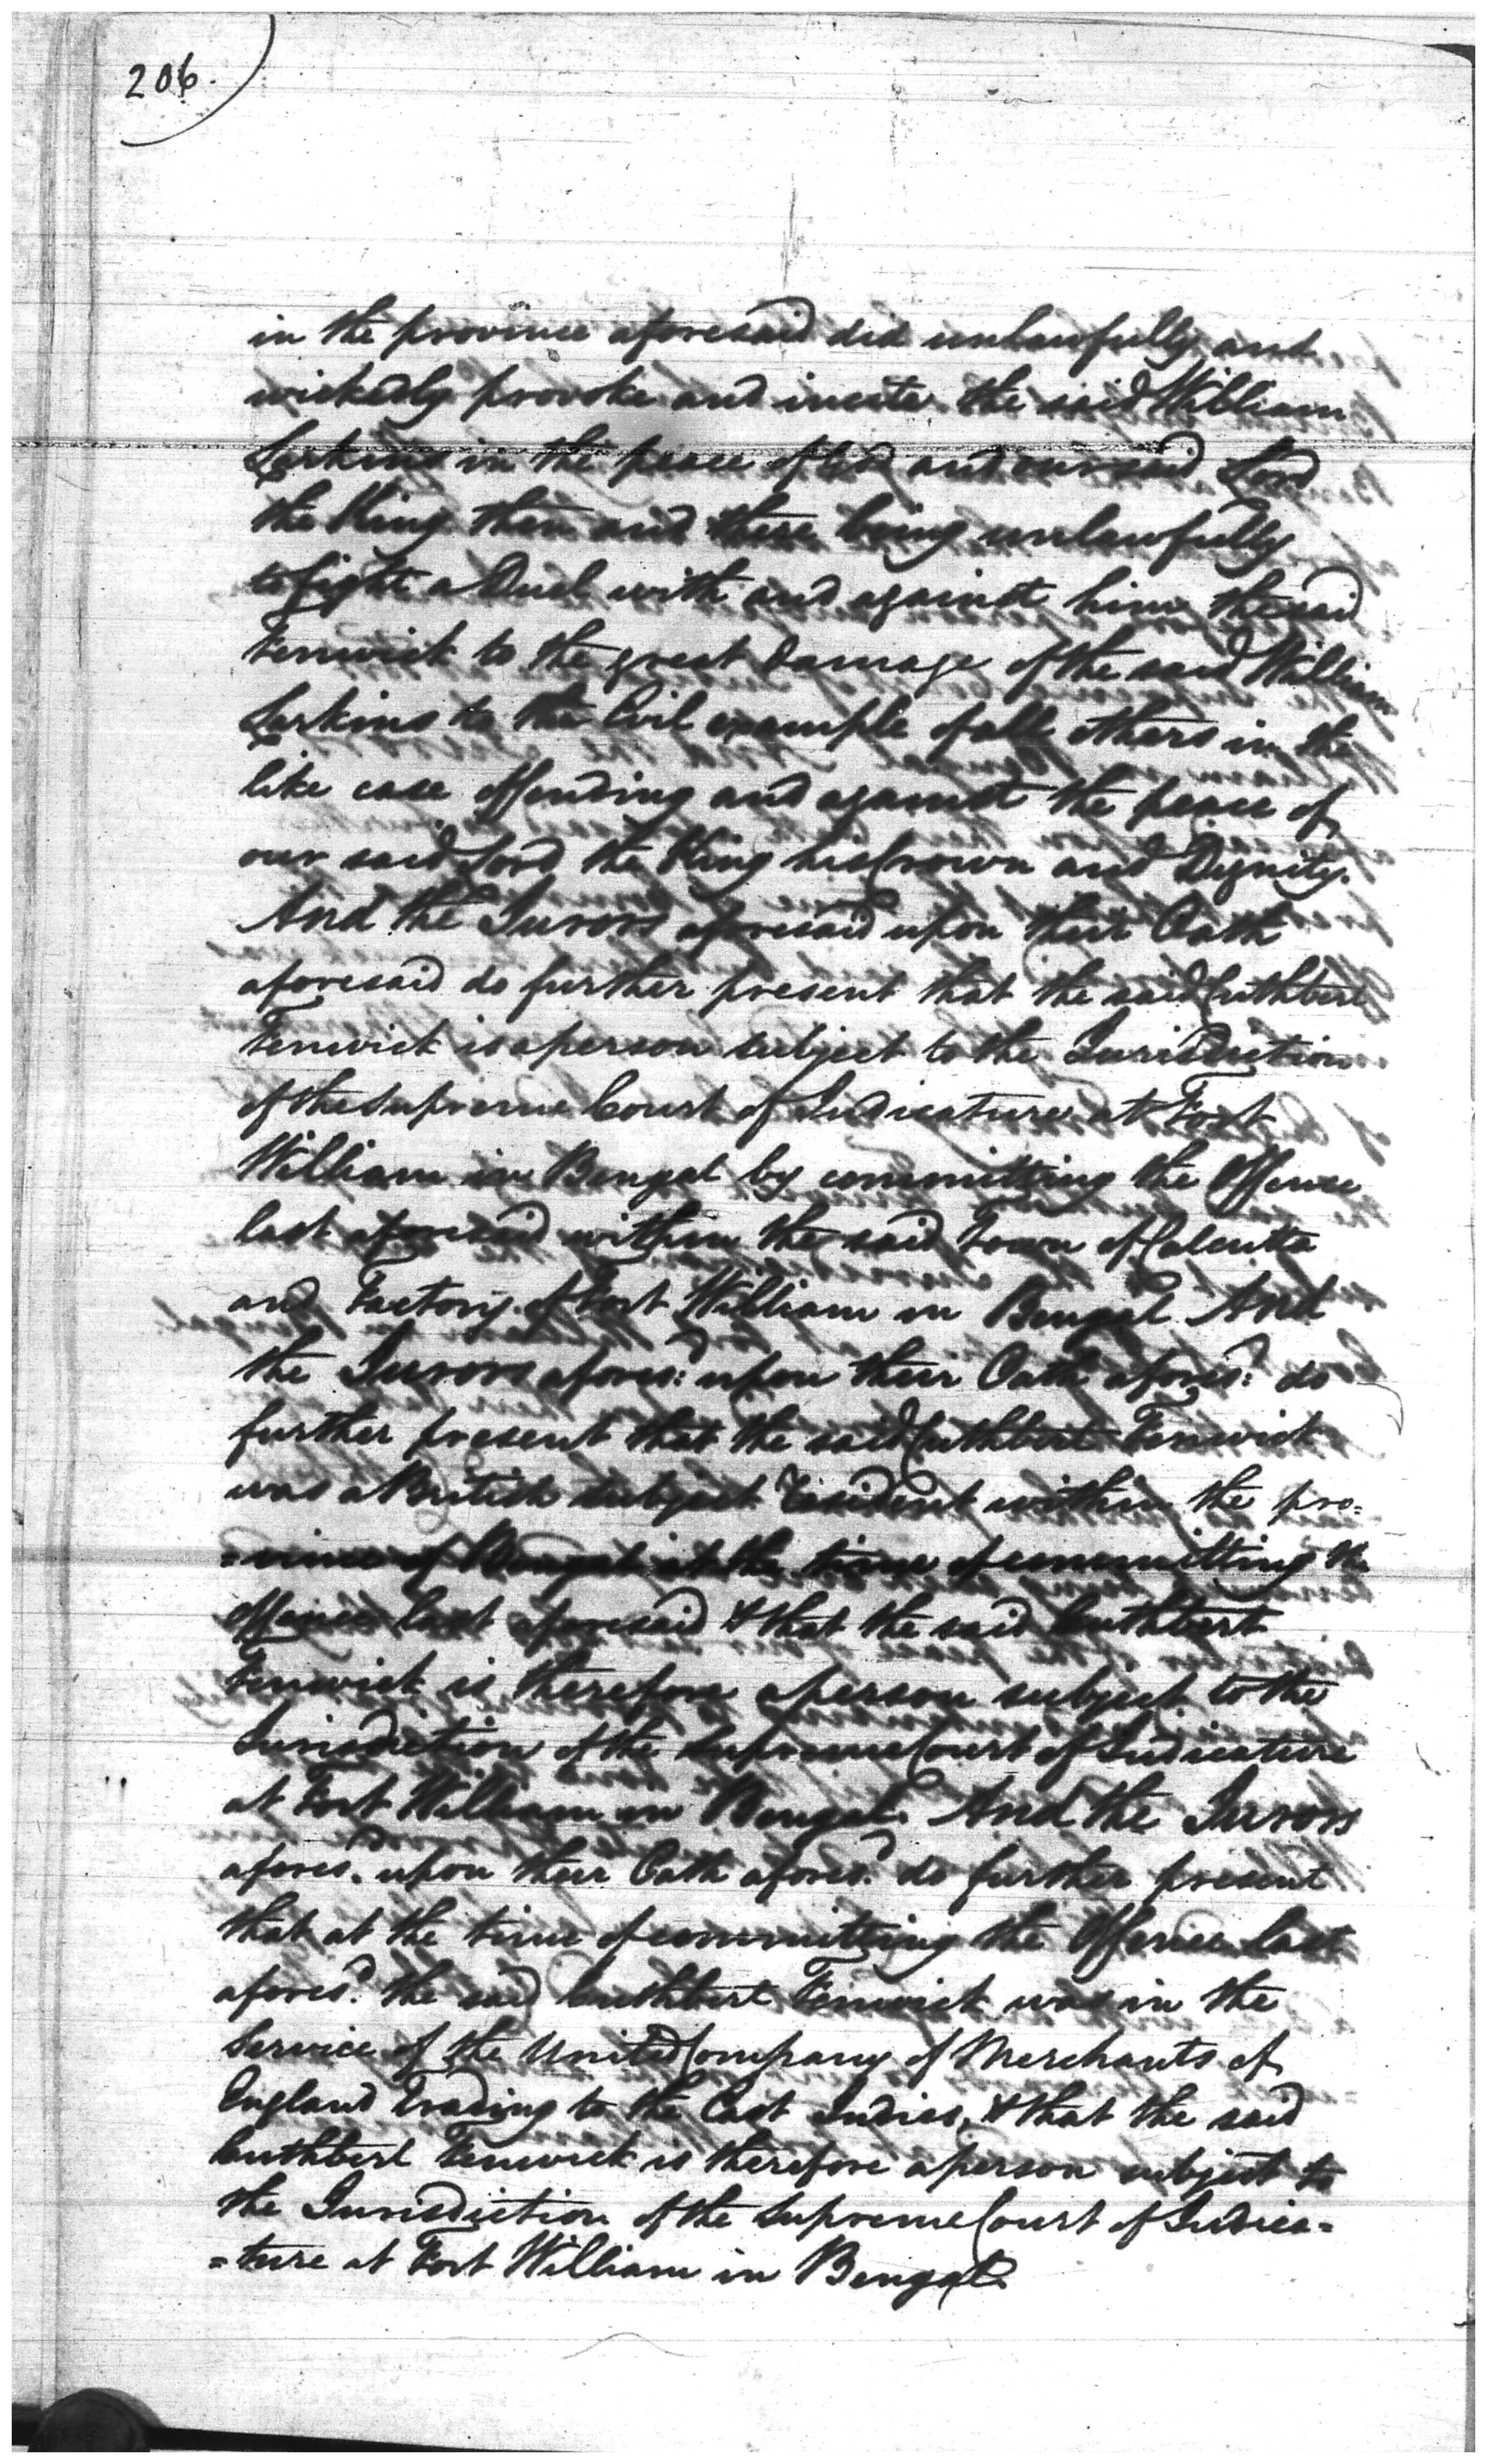 206.
in the province aforesaid did unlawfully and
wickedly provoke and incite the said William
Larkins in the peace of God and our said Lord
the King then and there being unlawfully
to fight a Duel with and against him the said
Fenwick to the great Damage of the said William
Larkins to the Evil example of all others in the
like case offending and against the peace of
our said Lord the King his Crown and Dignity.
And the Jurors aforesaid upon their Oath
aforesaid do further present that the said Cuthbert
Fenwick is a person subject to the Jurisdiction
of the Supreme Court of Judicature at Fort
William in Bengal by committing the Offence
last aforesaid within the said Town of Calcutta
and Factory of Fort William in Bengal And
the Jurors afores:d upon their Oath afores:d do
further present that the said Cuthbert Fenwick
was a British subject resident within the pro=
=vince of Bengal at the time of committing the
offence last aforesaid & that the said Cuthbert
Fenwick is therefore a person subject to the
Jurisdiction of the Supreme Court of Judicature
at Fort William in Bengal. And the Jurors
afores.d upon their Oath afores.d do further present
that at the time of committing the Offence last
afores.d the said Cuthbert Fenwick was in the
Service of the United Company of Merchants of
England Trading to the East Indies, & that the said
Cuthbert Fenwick is therefore a person subject to
the Jurisdiction of the Supreme Court of Judica=
=ture at Fort William in Bengal.